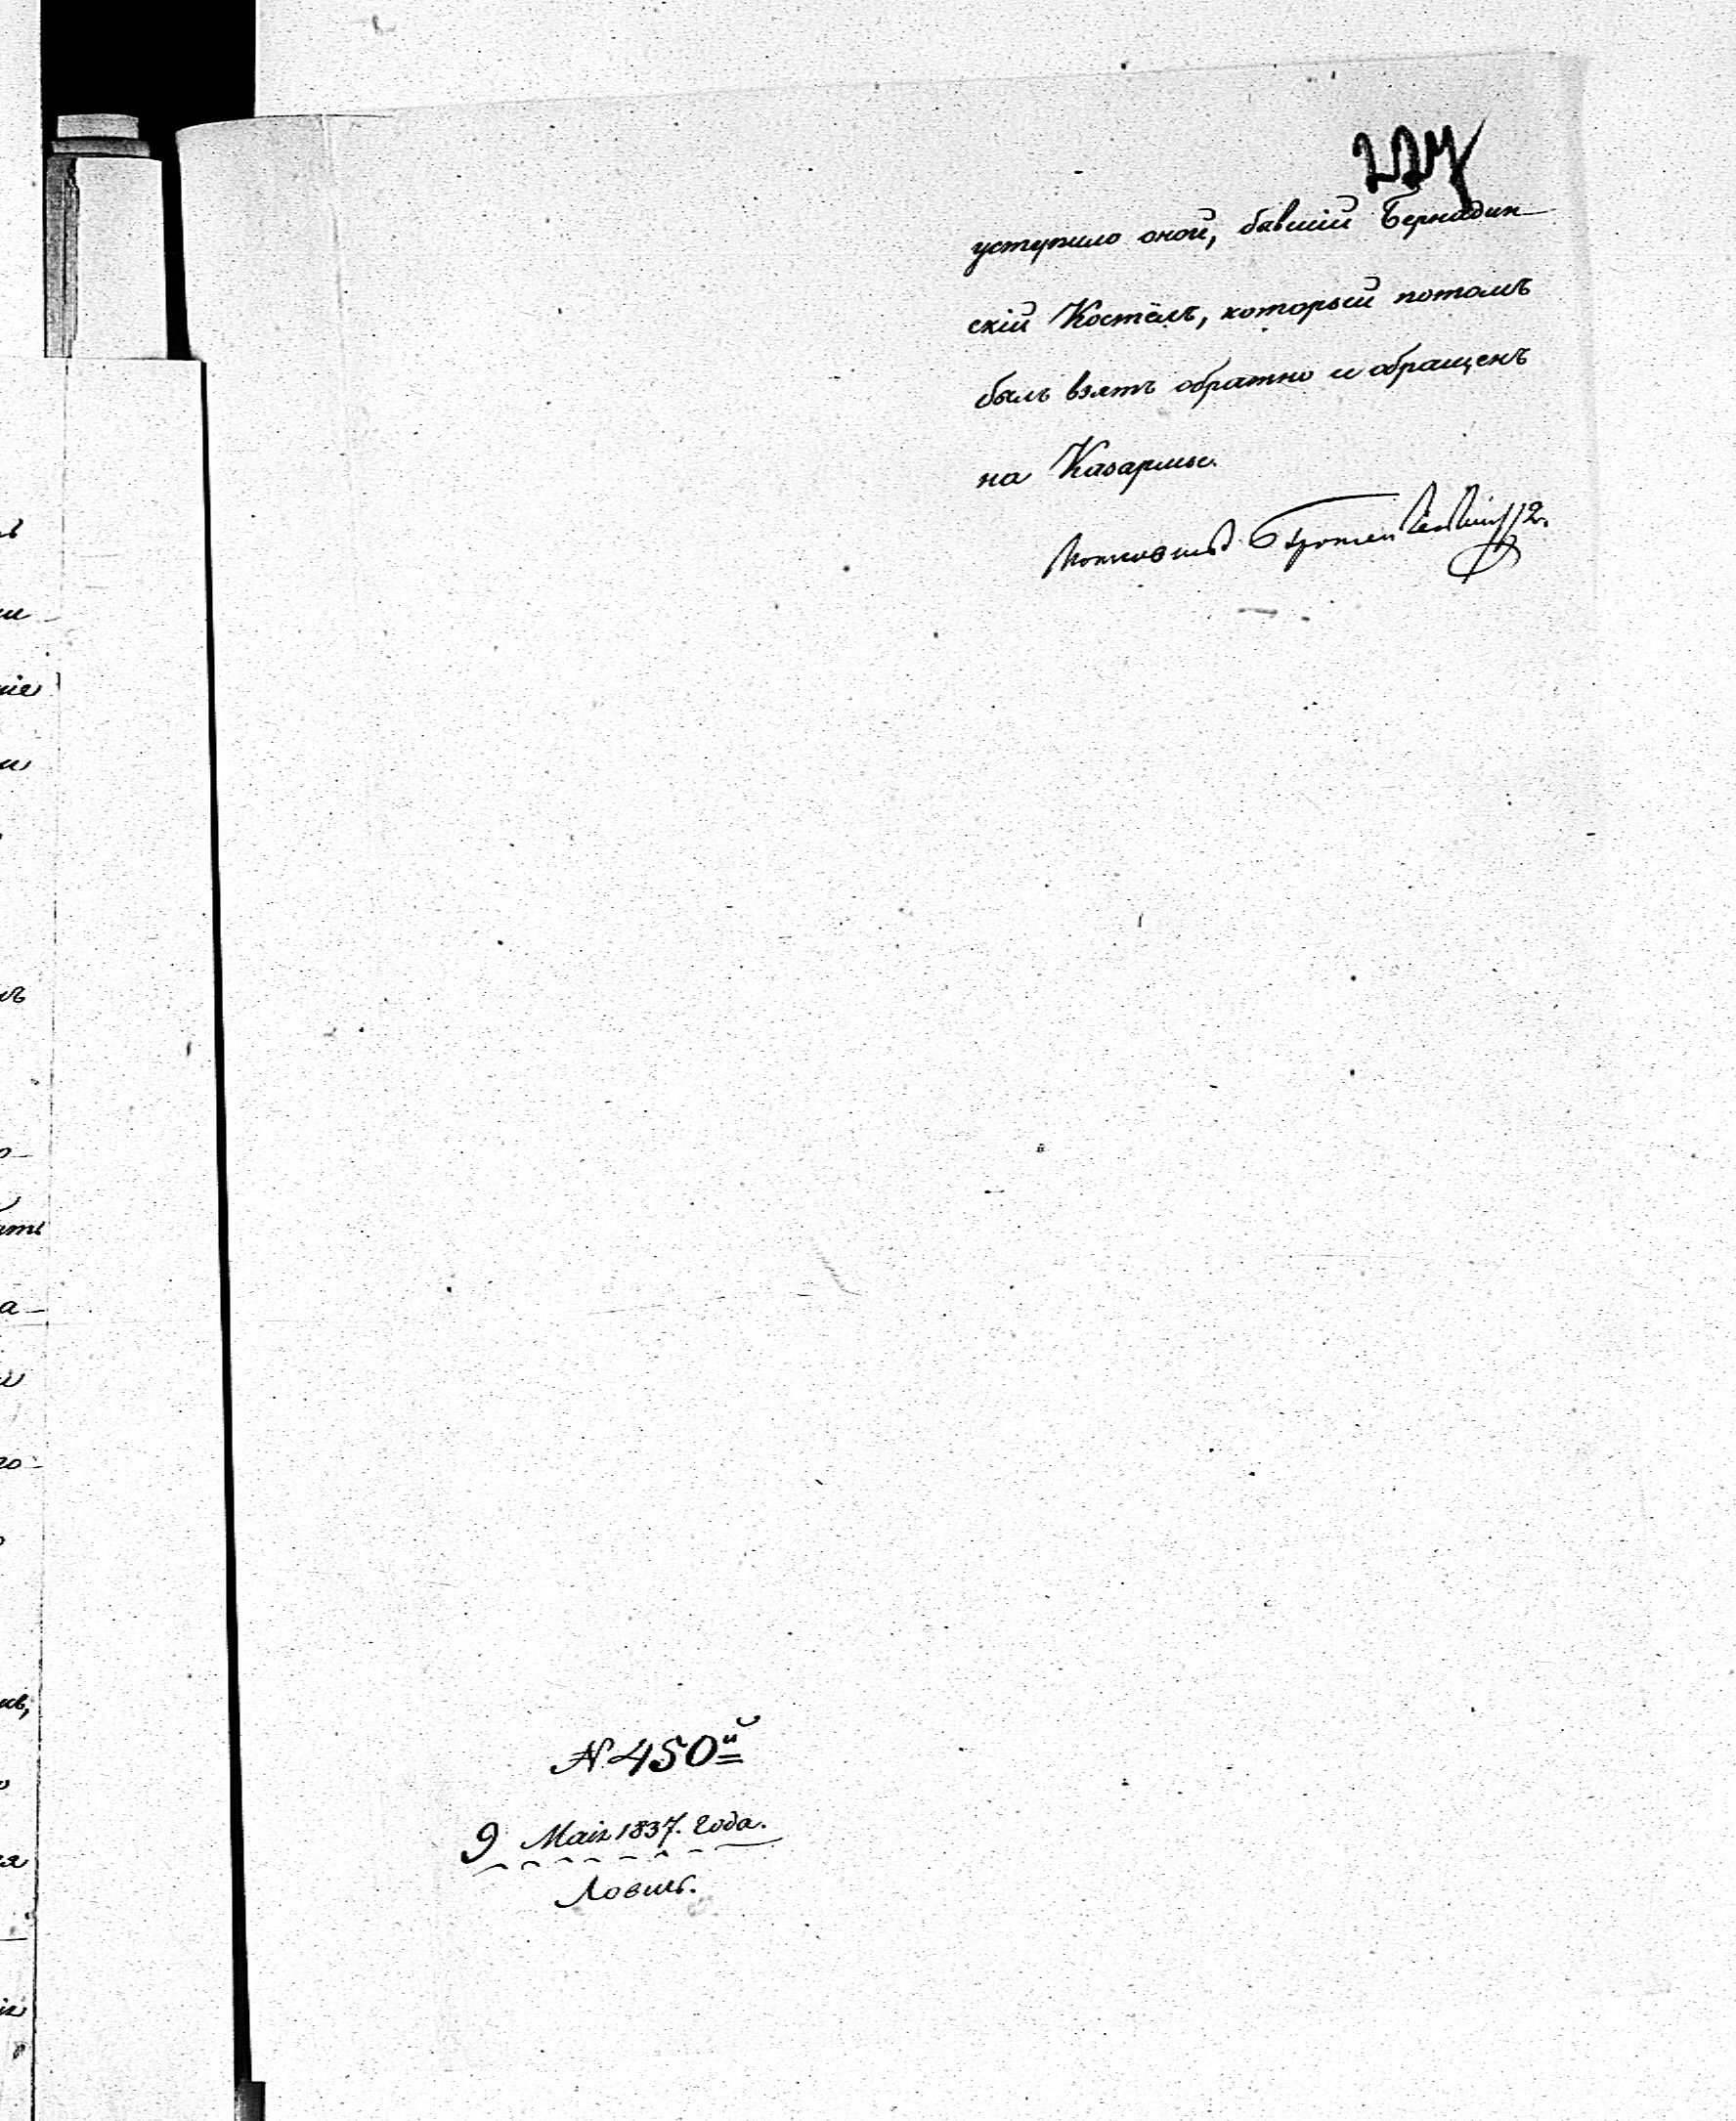 227
уступило оной, бывшій Бернадин-
скій Костёлъ, который потомъ
былъ взятъ обратно и обращенъ
на Казармы.
№ 450й
9 Маія 1837. года.